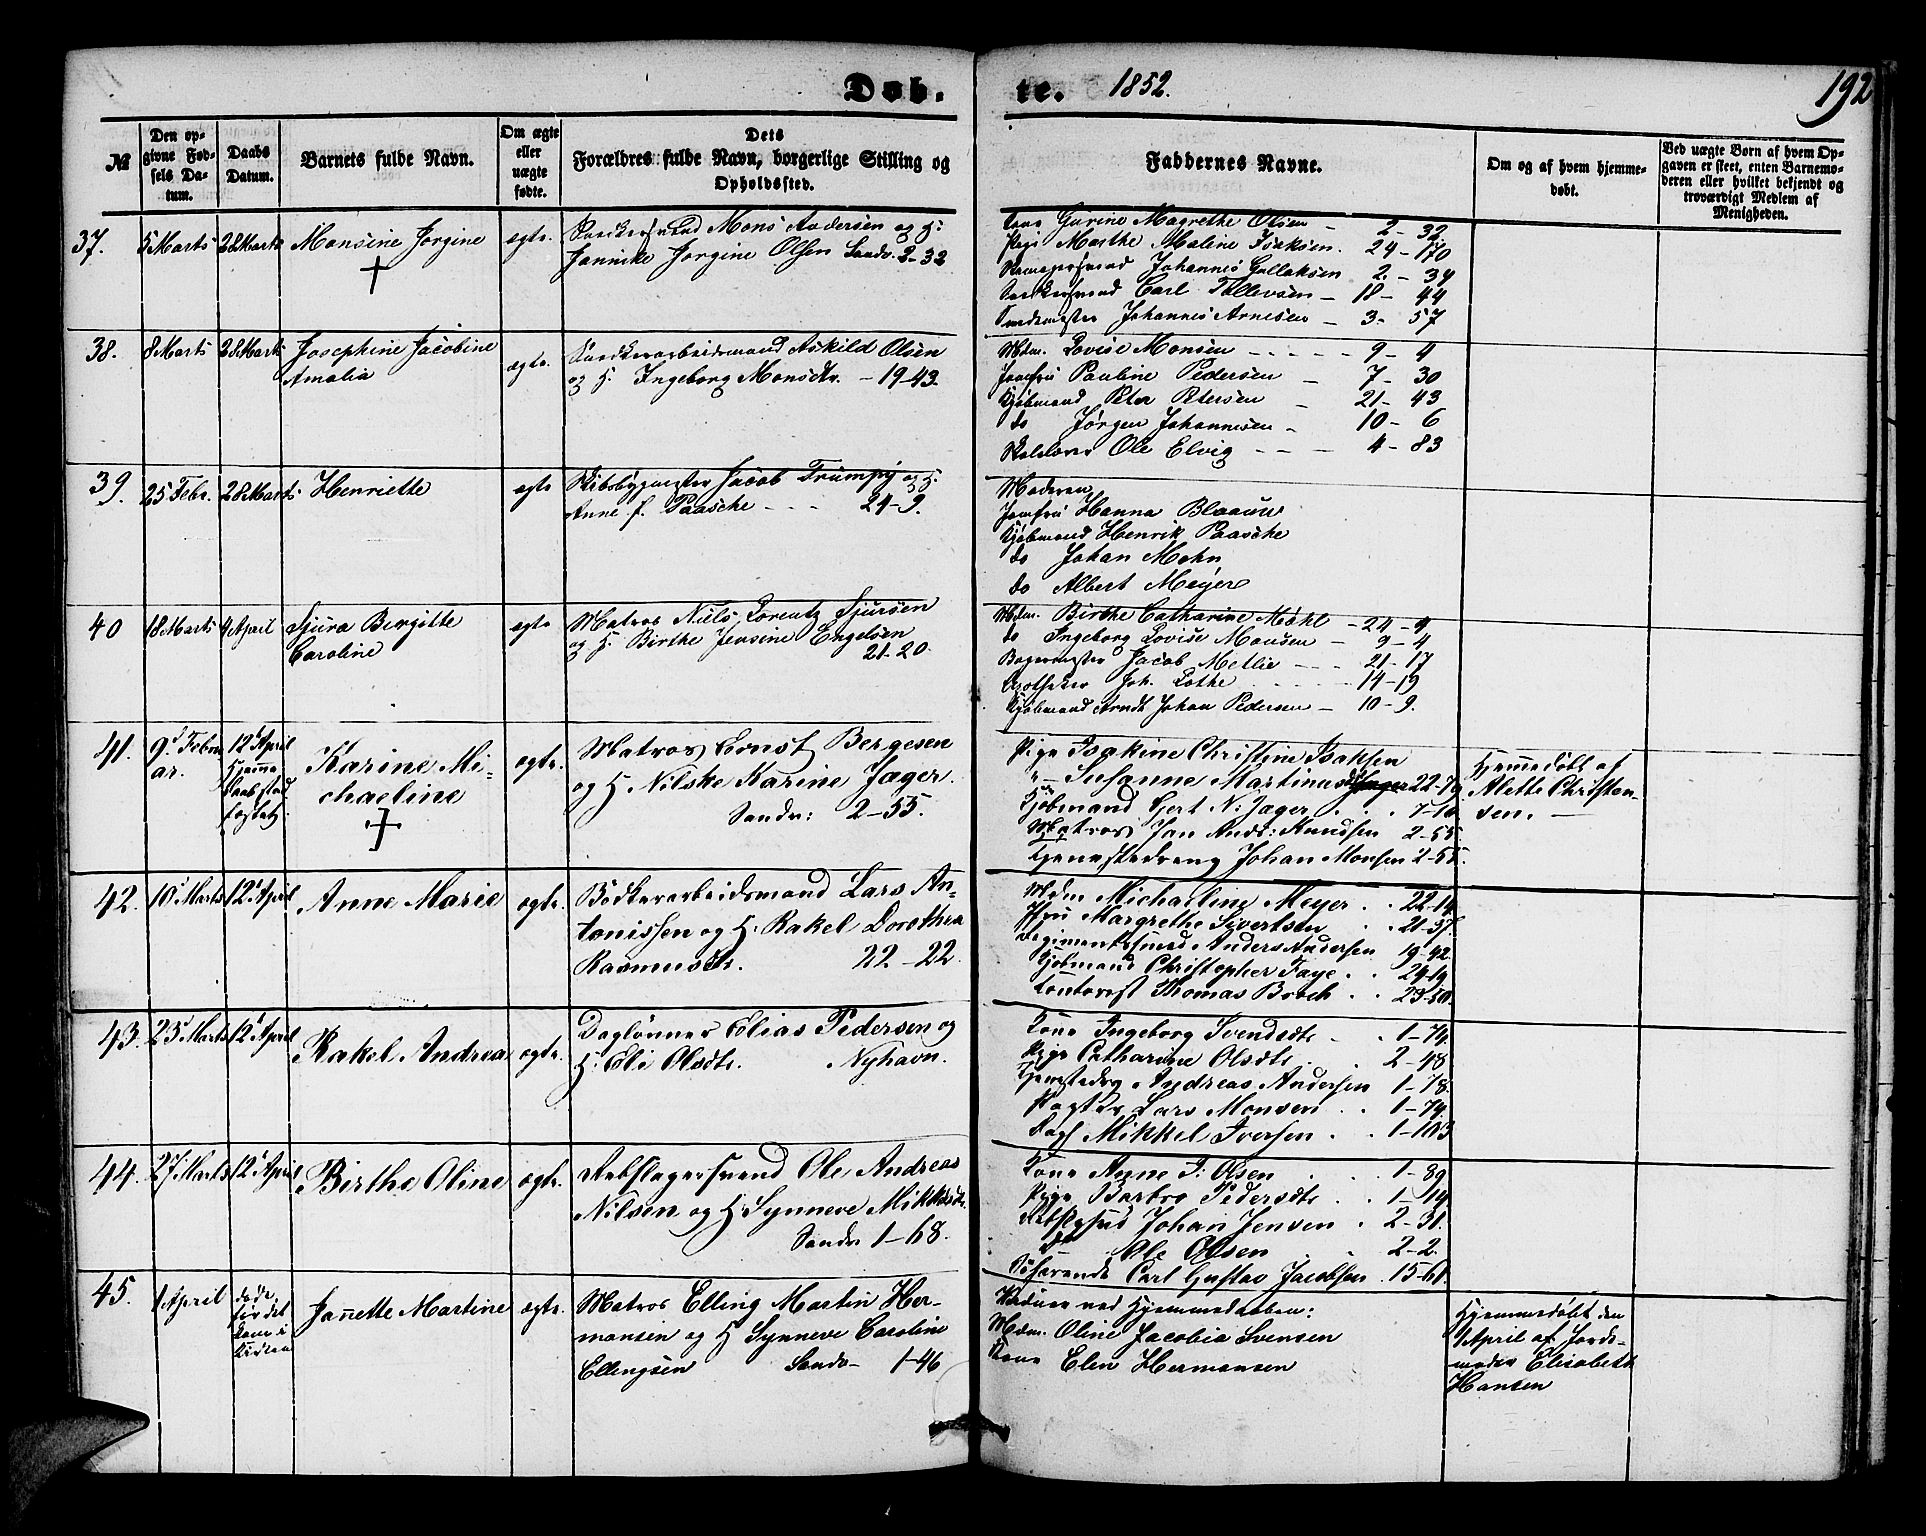 Døb. te. 1852. 192
№
Den opgivne Fødsels Datum.
Daabs Datum.
Barnets fulde Navn.
Om ægte eller uægte fødte.
Dets Forældres fulde Navn, borgerlige Stilling og Opholdssted.
Faddernes Navne.
Om og af hvem hjemmedøbt.
Ved uægte Børn af hvem Opgaven er skeet, enten Barnemoderen eller hvilket bekjendt og troværdigt Medlem af Menigheden.
37. 5 Marts 28 Marts Monsine Jørgine ægte.
Mons Andersen og H:
Jannike Jørgine Olsen Sandv. 2-32
Gurine Magrethe Olsen - 2 - 32
Pige Marthe Maline Isaksen. 24 - 170
Johannes Gullaksen 2 - 34
Carl Tollevsen - 18 - 44
Johannes Arnesen - 3 - 57
38. 8 Marts 28 Marts Josephine Jacobine
Amalia ægte.
Askild Olsen
og H. Ingeborg Monsdtr. - 19-43.
Mdm. Lovise Monsen - - - - - 9 - 4
Jomfru Pauline Pedersen - 7 - 30
Kjøbmand Peter Petersen - 21 - 43
do Jørgen Johannesen - 10 - 6
Ole Elvig - - - 4 - 83
39. 25 Febr. 28 Marts Henriette ægte
Skibsbygmester Jacob Trumpy og H:
Anne f. Paasche - - - 24-9.
Moderen
Jomfru Hanna Blaauw
Kjøbmand Henrik Paasche
do Johan Mohn
do Albert Meyer
40 18 Marts 4 April Sjura Bergitte
Caroline ægte
Matros Niels Lorentz Sjursen
og H. Birthe Jensine Engelsen
21-20.
Mdm. Birthe Catharine Møhl - 24 - 9
do Ingeborg Lovise Monsen - 9 - 4
Bagermester Jacob Metlie - - - 21 - 17
Apotheker Joh. Lothe - - - - 14 - 19
Kjøbmand Arndt Johan Pedersen - 10 - 9.
41. 9 Februar. 12 April
Hjemmedaab stadfæstet.
Karine Michaeline ægte.
Matros Ernst Bergesen
og H. Nilske Karine Jæger.
Sandv: 2-55.
Pige Isakine Christine Isaksen
Susanne Martinusdtr 22-79
Kjøbmand Gert N: Jæger . . . 7-10
Matros Jan Andr: Knudsen 2-55
Tjenestedreng Johan Monsen 2-55.
Hjemmedøbt af
Alette Christensen. -
42. 10 Marts 12 April Anne Marie ægte.
Bødkerarbeidsmand Lars Antonissen og H. Rakel Dorothea
Rasmusdtr. 22-22.
Mdm Michaeline Meyer . . 22-14
Jfru Margrethe Sivertsen . . 21-57
Regimentssmed Anders Andersen 19-92
Kjøbmand Christopher Faye . . 24-19
Contorist Thomas Broch . . 23-50.
43. 25 Marts 12 April Rakel Andrea ægte.
Daglønner Elias Pedersen og
H. Eli Olsdtr. Nyhavn.
Kone Ingeborg Svendsdtr . . 1-74.
Pige Catharine Olsdtr . . 2-48
Andreas Andersen 1-78.
Lars Monsen . . 1-74.
Dagl Mikkel Iversen . . 1-103
44. 27 Marts 12 April Birthe Oline ægte.
Rebslagersvend Ole Andreas
Nilsen og H. Synneve Mikkelsdtr.
Sandv 1-68.
Kone Anne J: Olsen . . 1-89
Pige Barbro Pedersdtr . 1-19
Johan Jensen . 2-31.
do Ole Olsen . . 2-2.
Søfarende Carl Gustav Jacobsen . 15-61.
45. 1 April døde
før det
kom i
Kirken Janette Martine ægte.
Matros Elling Martin Hermansen og H Synneve Caroline
Ellingsen Sandv - 1-46
Vidner ved Hjemmedaaben:
Mdm. Oline Jacobia Svensen
Kone Elen Hermansen
Hjemmedøbt den
1 April af Jordemoder Elisabeth
Hansen